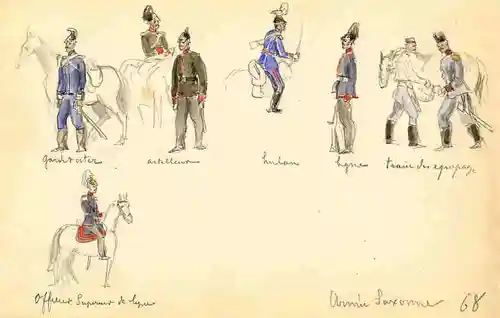 artilleur
hulan
ligne
train des équipage
Officier Supérieur de ligne
Armée Saxonne 68